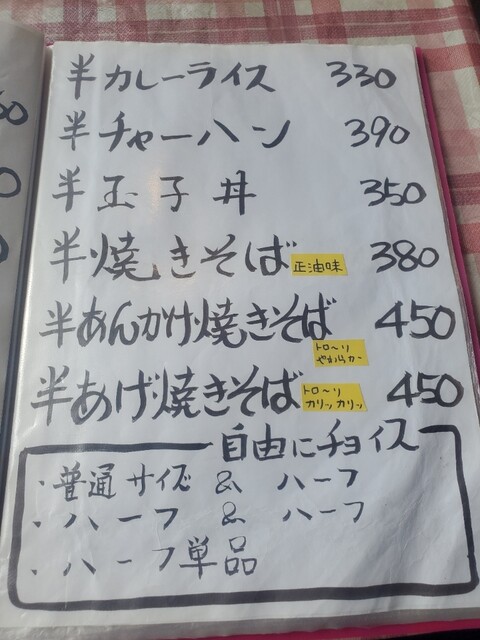 半カレーライス 330
半チャーハン 390
半玉子丼 350
半焼きそば 正油味 380
半あんかけ焼きそば 450
トロ〜リ
やわらか
半あげ焼きそば 450
トロ〜リ
カリッカリッ
自由にチョイス
・普通サイズ & ハーフ
・ハーフ & ハーフ
・ハーフ単品